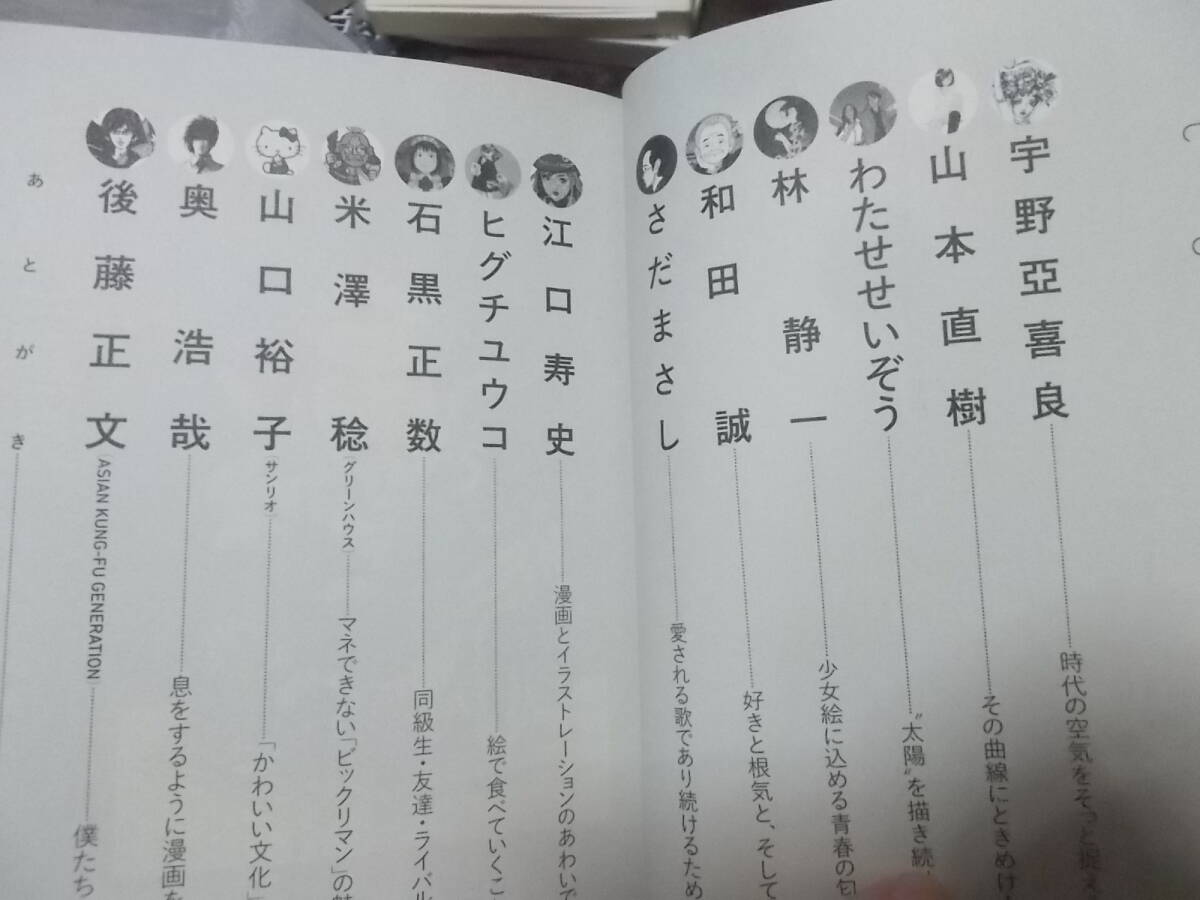 宇野亞喜良 時代の空気をそっと捉え
山本直樹 その曲線にときめけ
わたせせいぞう “太陽”を描き続
林静一 少女絵に込める青春の匂
和田誠 好きと根気と、そして
さだまさし 愛される歌であり続けるため
江口寿史 漫画とイラストレーションのあわいで
ヒグチユウコ 絵で食べていくこ
石黒正数 同級生・友達・ライバル
米澤稔(グリーンハウス) マネできない「ビックリマン」の
山口裕子(サンリオ) 「かわいい文化」
奥浩哉 息をするように漫画を
後藤正文(ASIAN KUNG-FU GENERATION) 僕たち
あとがき